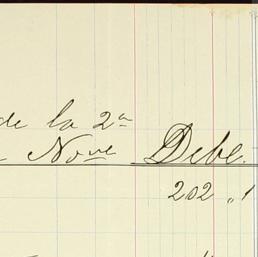 de la 2ª
Nov.ᵉ Debe.
202 "1